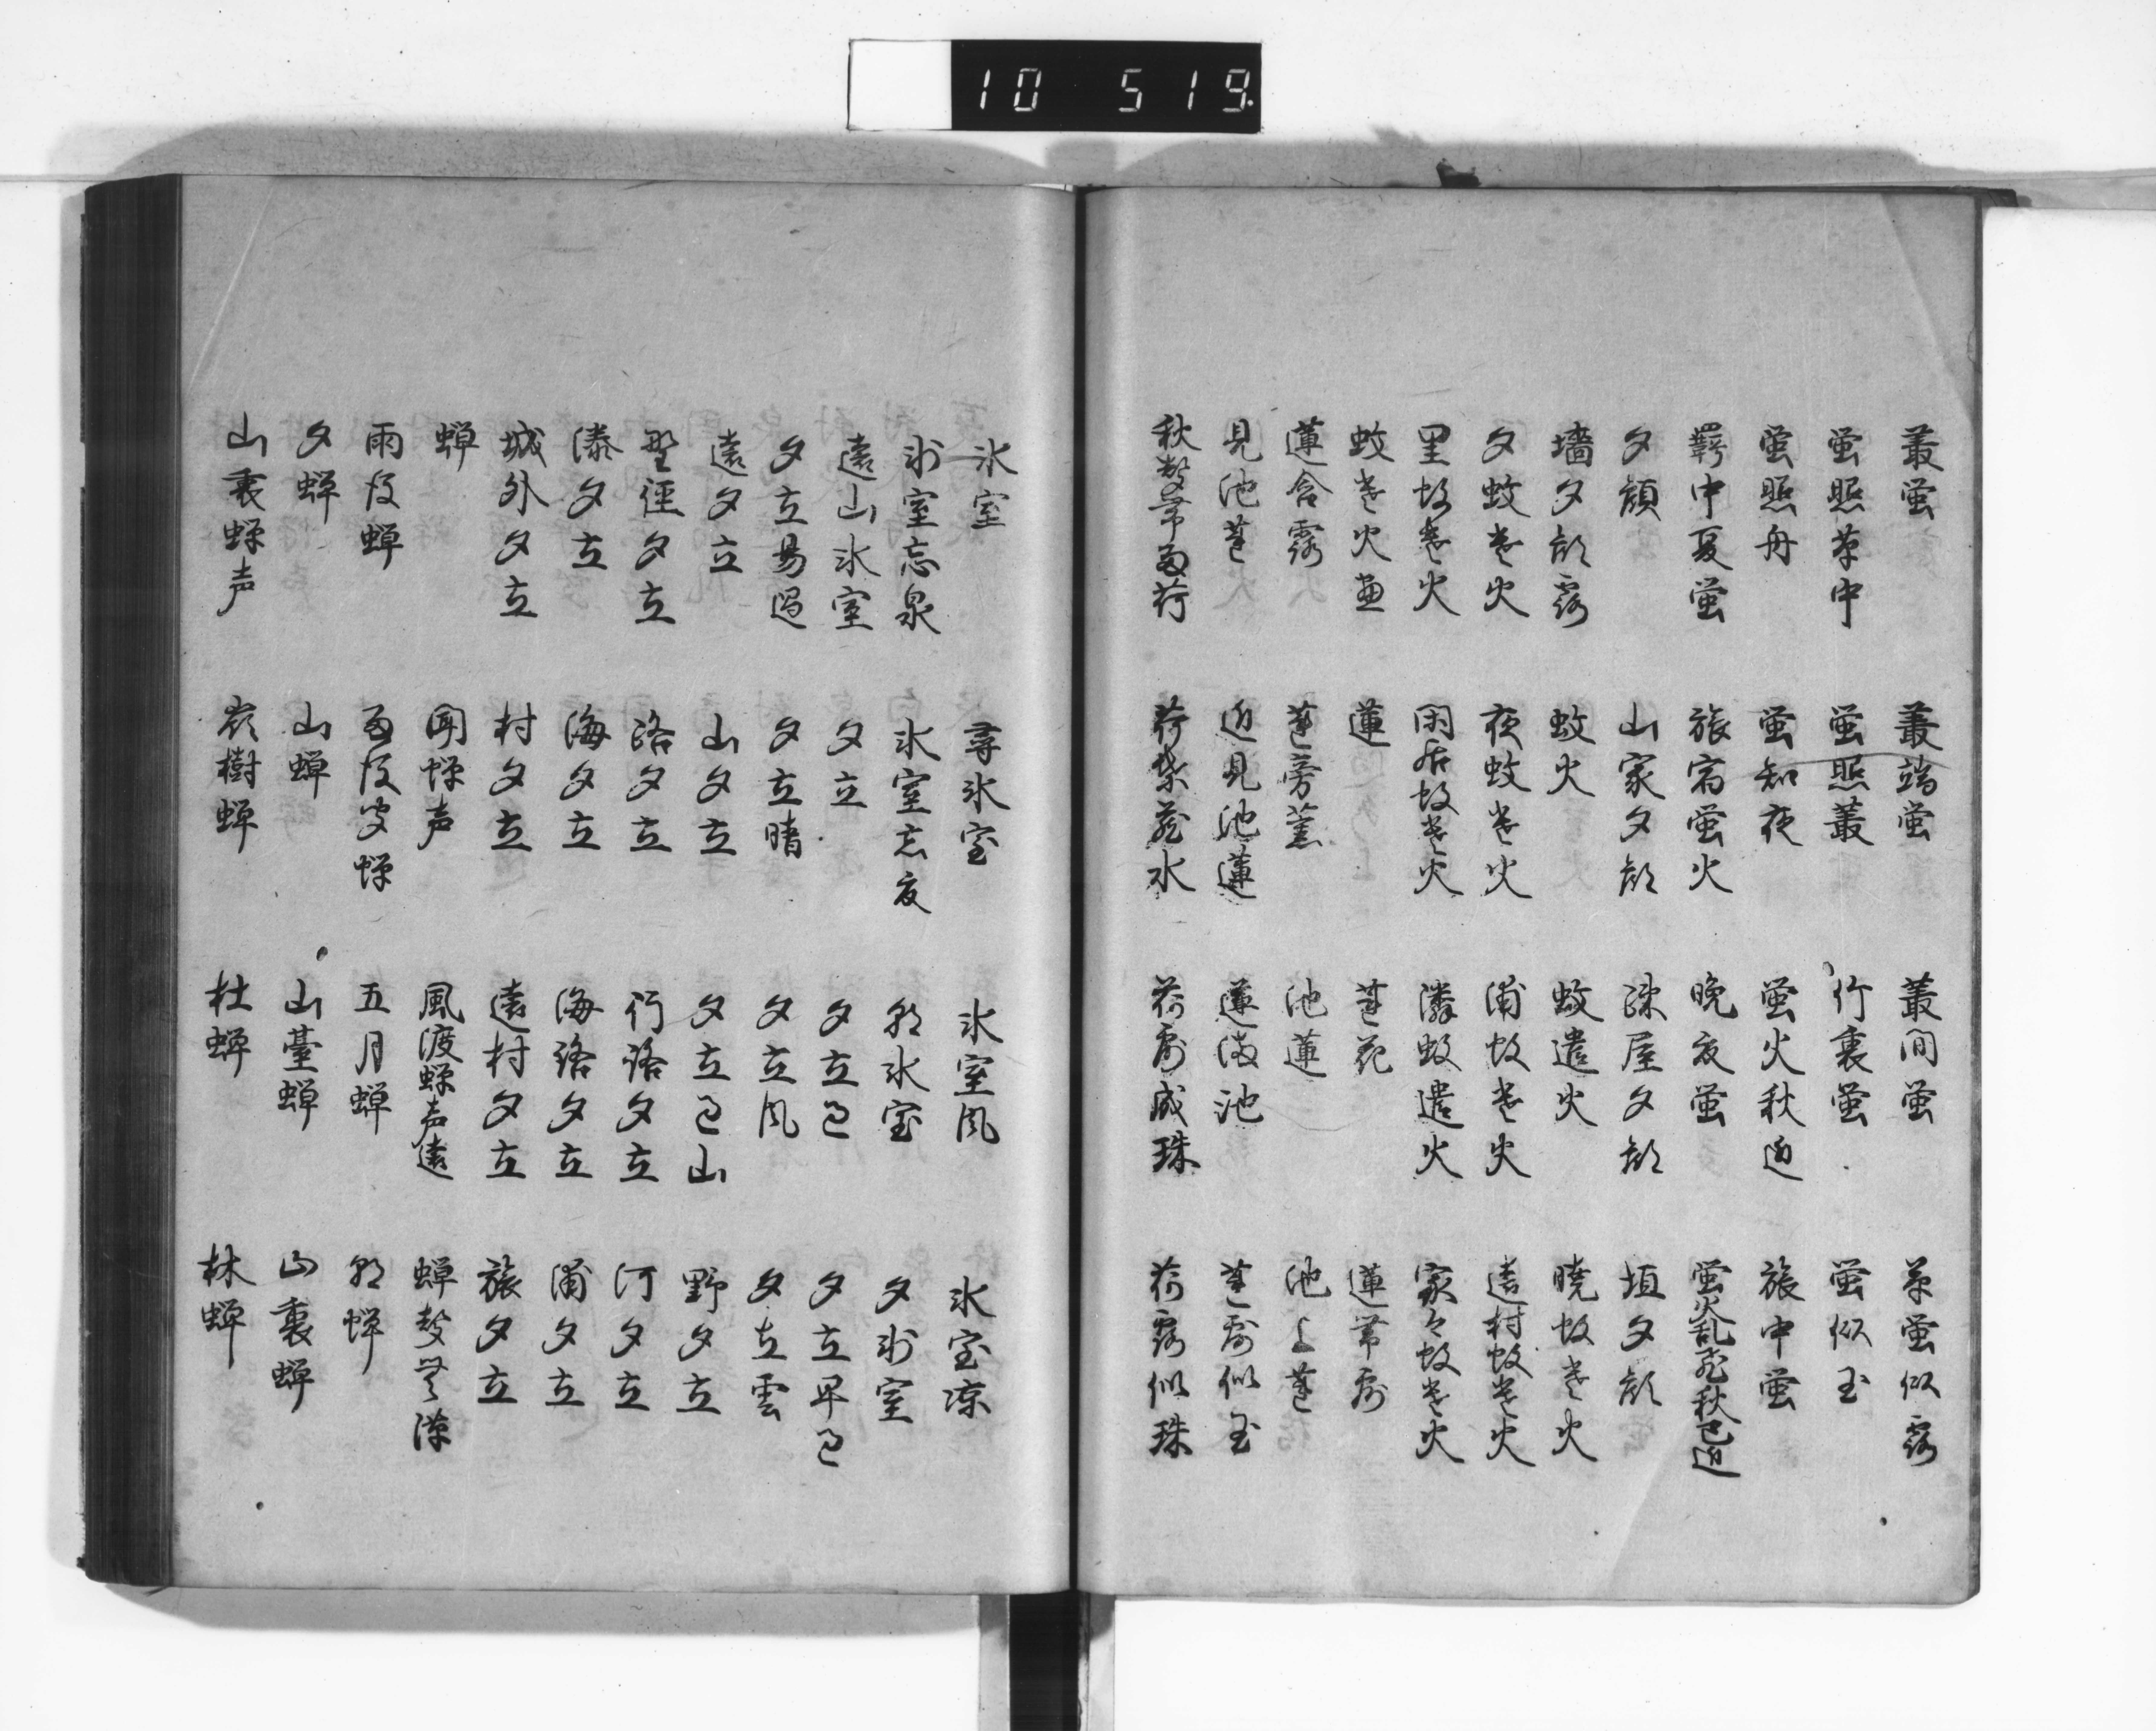 10 519.
叢蛍 叢端蛍 叢間蛍 草蛍似露
蛍照草中 蛍照叢 竹裏蛍 蛍似玉
蛍照舟 蛍知夜 蛍火秋近 旅中蛍
羇中夏蛍 旅宿蛍火 晩夏蛍 蛍火乱飛秋已近
夕顔 山家夕顔 疎屋夕顔 垣夕顔
墻夕顔露 蚊火 蚊遣火 暁蚊遣火
夕蚊遣火 夜蚊遣火 浦蚊遣火 遠村蚊遣火
里蚊遣火 閑居蚊遣火 隣蚊遣火 家々蚊遣火
蚊遣火 蓮 蓮花 蓮帯露
蓮含露 蓮旁薫 池蓮 池上蓮
見池蓮 近見池蓮 蓮満池 蓮露似玉
秋声帯雨荷 荷葉蔵水 荷露成珠 荷露似珠
氷室 尋氷室 氷室風 氷室凉
氷室忘泉 氷室忘夏 朝氷室 夕氷室
遠山氷室 夕立 夕立過 夕立早過
夕立易過 夕立晴 夕立風 夕立雲
遠夕立 山夕立 夕立過山 野夕立
野径夕立 路夕立 行路夕立 河夕立
滝夕立 海夕立 海路夕立 浦夕立
城外夕立 村夕立 遠村夕立 旅夕立
蝉 聞蝉声 風渡蝉声遠 蝉声
雨後蝉 雨後聞蝉 五月蝉 朝蝉
夕蝉 山蝉 山台蝉 山裏蝉
山裏蝉声 嶺樹蝉 杜蝉 林蝉